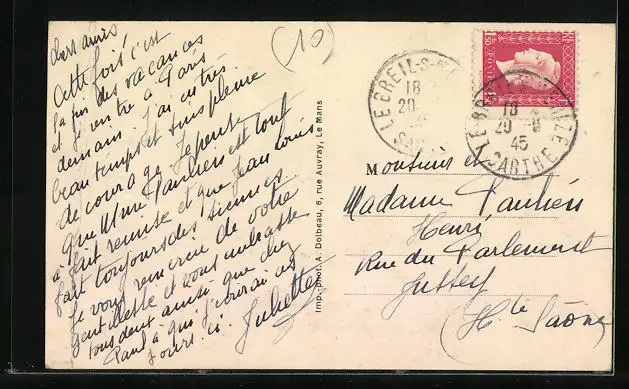 Chers amis
Cette fois c'est
la fin des vacances
et je rentre à Paris
demain. J'ai eu très
beau temps et suis pleine
de courage. Je pense
que Mme Paulien est tout
à fait remise et que Jean Louis
fait toujours des siennes.
Je vous remercie de votre
gentillesse et vous embrasse
tous deux ainsi que chez
Paul à qui j'écrirai ces
jours-ci. Juliette
(10)
Imp.-phot. A. Dolbeau, 6, rue Auvray, Le Mans
LE BREIL-S-
18
20
LE BREIL
18
20-8
45
SARTHE
1F50
Monsieur et
Madame Paulien
Henri
Rue du Parlement
Jussey
(Hte Saône)